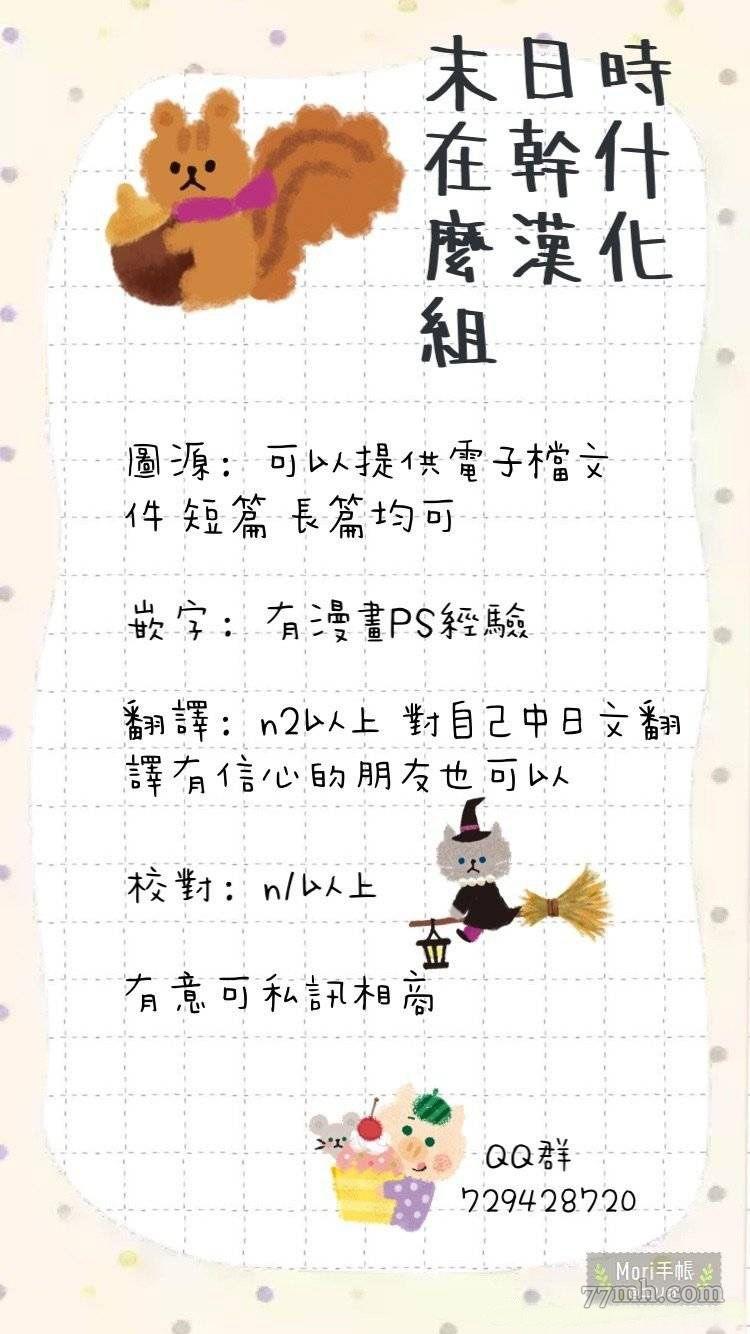 末日時
在幹什
麼漢化
組
圖源：可以提供電子檔文
件 短篇 長篇均可
嵌字：有漫畫PS經驗
翻譯：n2以上 對自己中日文翻
譯有信心的朋友也可以
校對：n1以上
有意可私訊相商
QQ群
729428720
Mori手帳
77mh.com